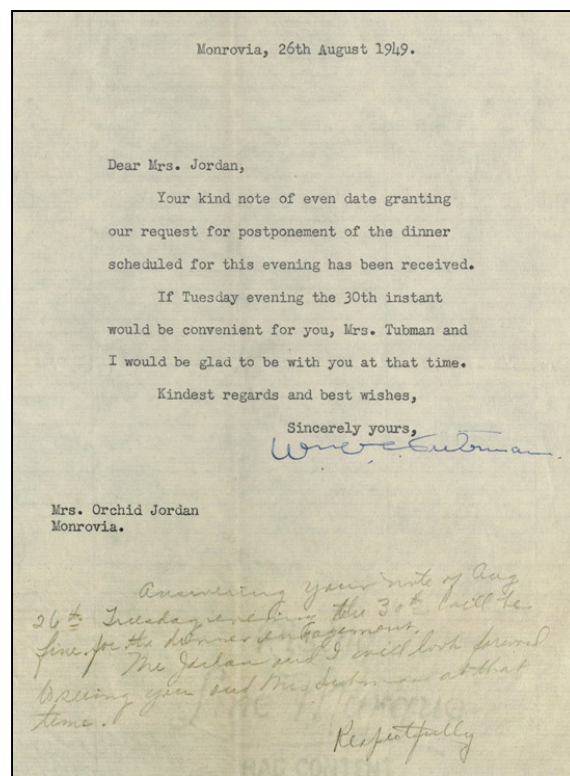 Monrovia, 26th August 1949.
Dear Mrs. Jordan,
Your kind note of even date granting
our request for postponement of the dinner
scheduled for this evening has been received.
If Tuesday evening the 30th instant
would be convenient for you, Mrs. Tubman and
I would be glad to be with you at that time.
Kindest regards and best wishes,
Sincerely yours,
Mrs. Orchid Jordan
Monrovia.
Answering your note of Aug
26th Tuesday evening the 30th will be
fine for the dinner engagement.
Mr Jordan and I will look forward
to seeing you and Mrs Tubman at that
time.
Respectfully